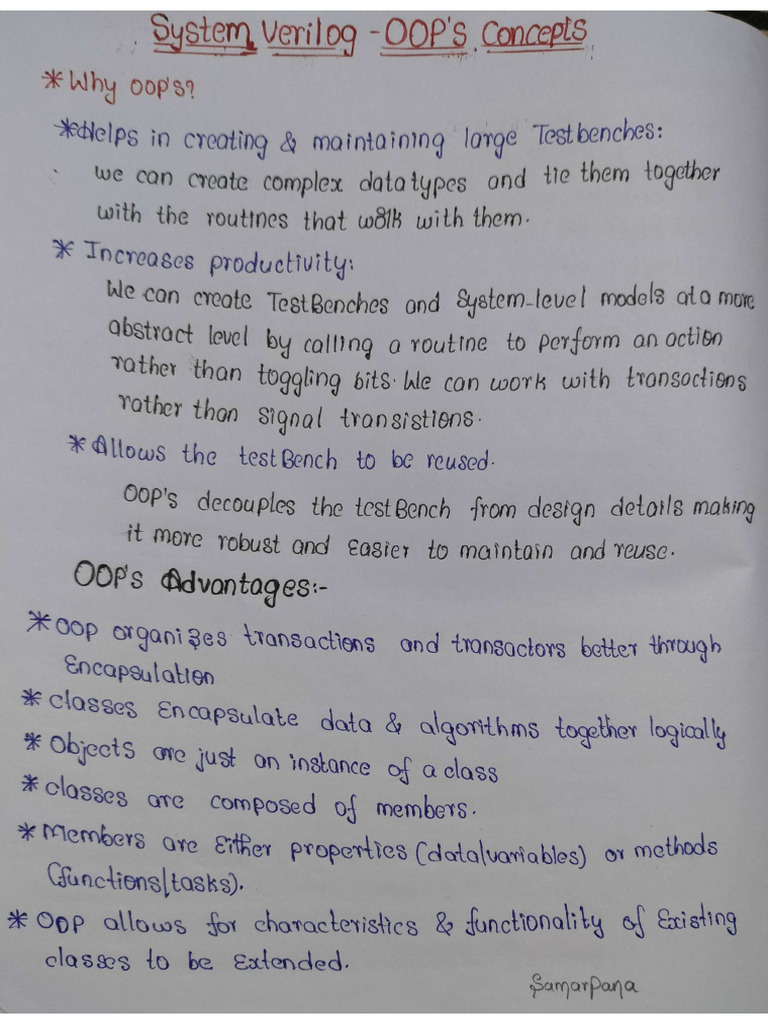 System Verilog - OOP's Concepts
* Why OOP's?
* Helps in creating & maintaining large Testbenches:
we can create complex datatypes and tie them together
with the routines that work with them.
* Increases productivity:
We can create TestBenches and System-level models at a more
abstract level by calling a routine to perform an action
rather than toggling bits. We can work with transactions
rather than signal transistions.
* Allows the testBench to be reused.
OOP's decouples the testBench from design details making
it more robust and Easier to maintain and reuse.
OOP's Advantages:-
* OOP organizes transactions and transactors better through
Encapsulation
* classes Encapsulate data & algorithms together logically
* Objects are just an instance of a class
* classes are composed of members.
* Members are Either properties (data/variables) or methods
(functions/tasks).
* OOP allows for characteristics & functionality of Existing
classes to be Extended.
Samarpana